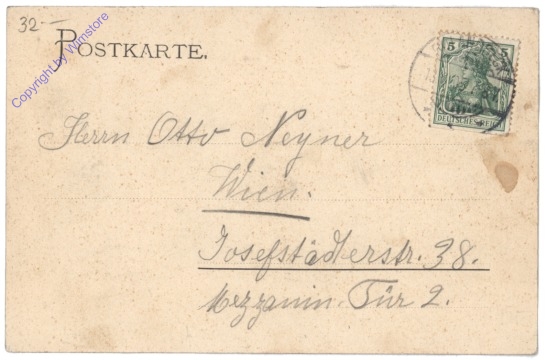 32.-
Copyright by Wimstore
POSTKARTE.
5
DEUTSCHES REICH
Herrn Otto Neyner
Wien.
Josefstädterstr. 38.
Mezzanin Tür 2.